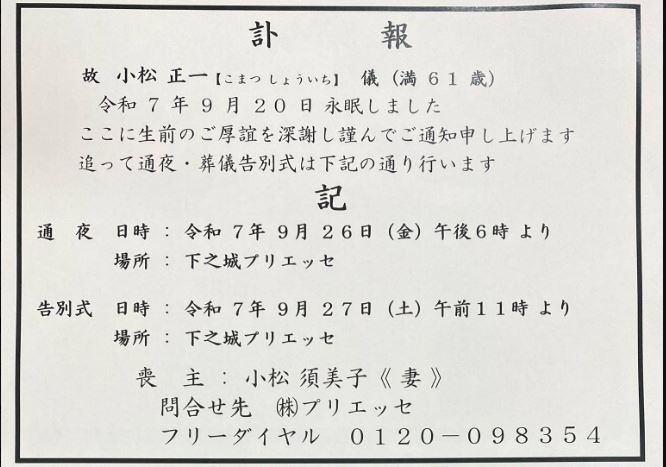 訃 報
故 小松 正一【こまつ しょういち】 儀 (満 ６１ 歳)
令和 ７ 年 ９ 月 ２０ 日 永眠しました
ここに生前のご厚誼を深謝し謹んでご通知申し上げます
追って通夜・葬儀告別式は下記の通り行います
記
通 夜 日時 ： 令和 ７年 ９月 ２６日 (金) 午後６時 より
場所 ： 下之城プリエッセ
告別式 日時 ： 令和 ７年 ９月 ２７日 (土) 午前１１時 より
場所 ： 下之城プリエッセ
喪 主 ： 小松 須美子《 妻 》
問合せ先 ㈱プリエッセ
フリーダイヤル ０１２０－０９８３５４